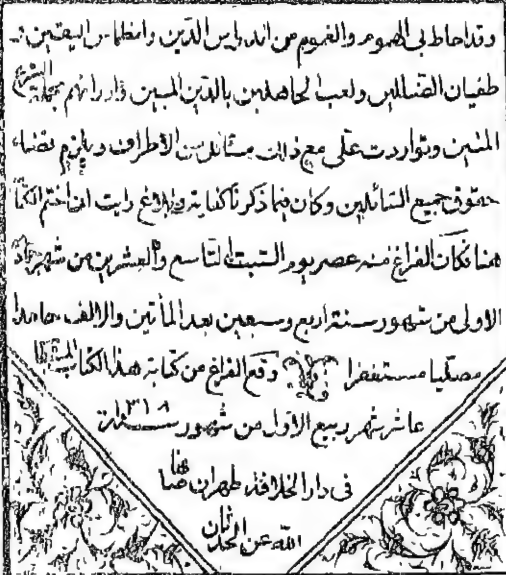 وقد احاط بى الهموم والغموم من اندراس الدين وانطماس اليقين و
طغيان الضالين ولعب الجاهلين بالدين المبين وازرائهم بحملة الشرع
المتين وتواردت على مع ذلك مسائل من الأطراف ويلزم قضاء
حقوق جميع السائلين وكان فيما ذكرنا كفاية وبلاغ رايت ان اختم الكتاب
هنا فكان الفراغ منه عصر يوم السبت التاسع والعشرين من شهر جمادى
الاولى من شهور سنة اربع وسبعين بعد المأتين والالف حامدا
مصليا مستغفرا وقع الفراغ من كتابة هذا الكتاب
عاشر شهر ربيع الاول من شهور سنة ١٣١٨
فى دار الخلافة طهران صانها
الله عن الحدثان